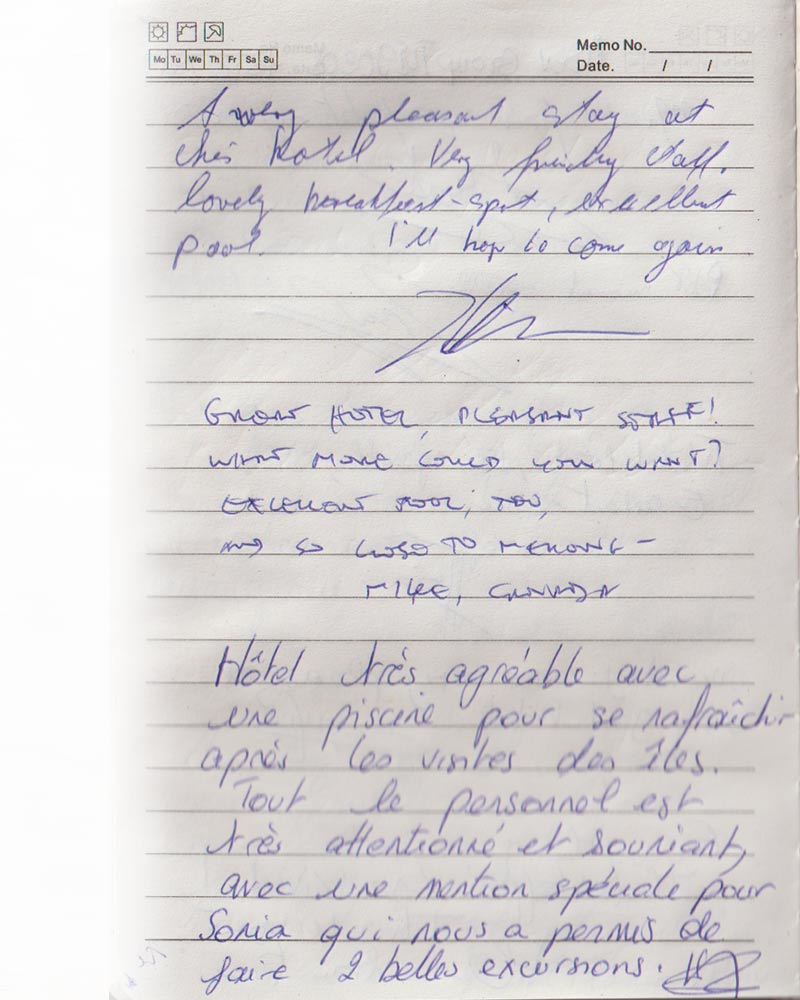 Mo Tu We Th Fr Sa Su
Memo No.
Date. / /
A very pleasant stay at
this hotel. Very friendly staff,
lovely breakfast-spot, excellent
pool. I'll hop to come again
GREAT HOTEL, PLEASANT STAFF!
WHAT MORE COULD YOU WANT?
EXCELLENT POOL, TOO,
AND SO CLOSE TO MEKONG -
MIKE, CANADA
Hôtel très agréable avec
une piscine pour se rafraîchir
après les visites des îles.
Tout le personnel est
très attentionné et souriant,
avec une mention spéciale pour
Sonia qui nous a permis de
faire 2 belles excursions.